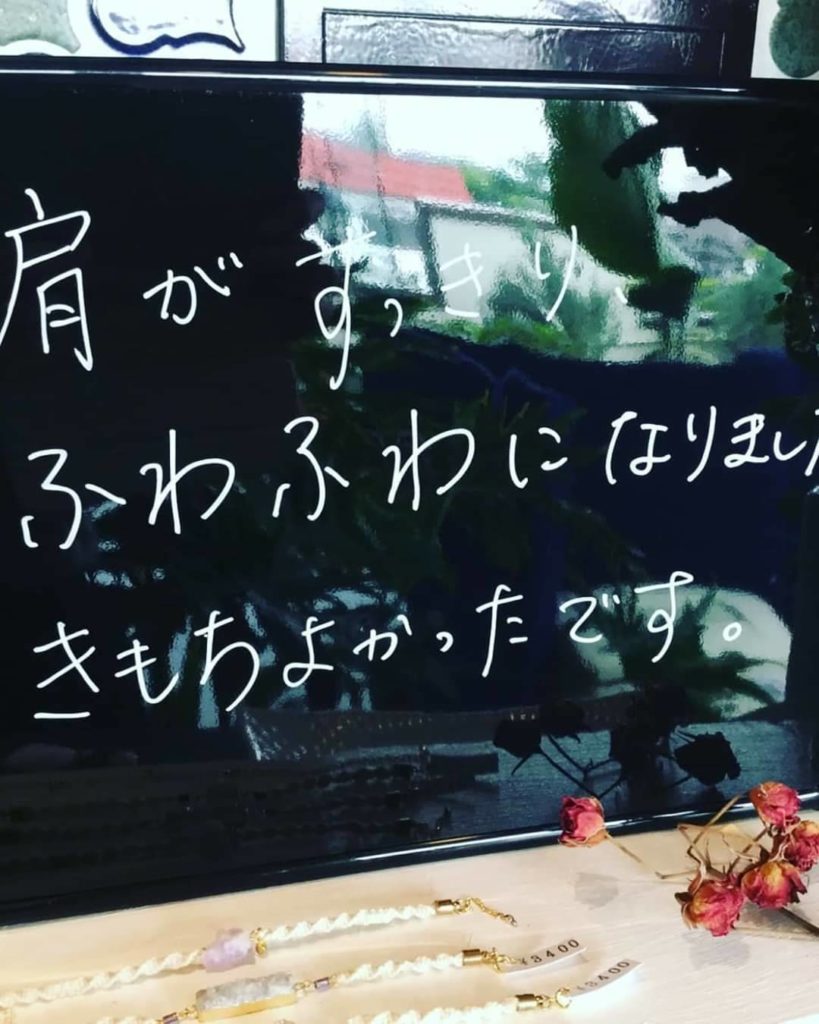 肩がすっきり、
ふわふわになりました
きもちよかったです。
¥3400
¥3400